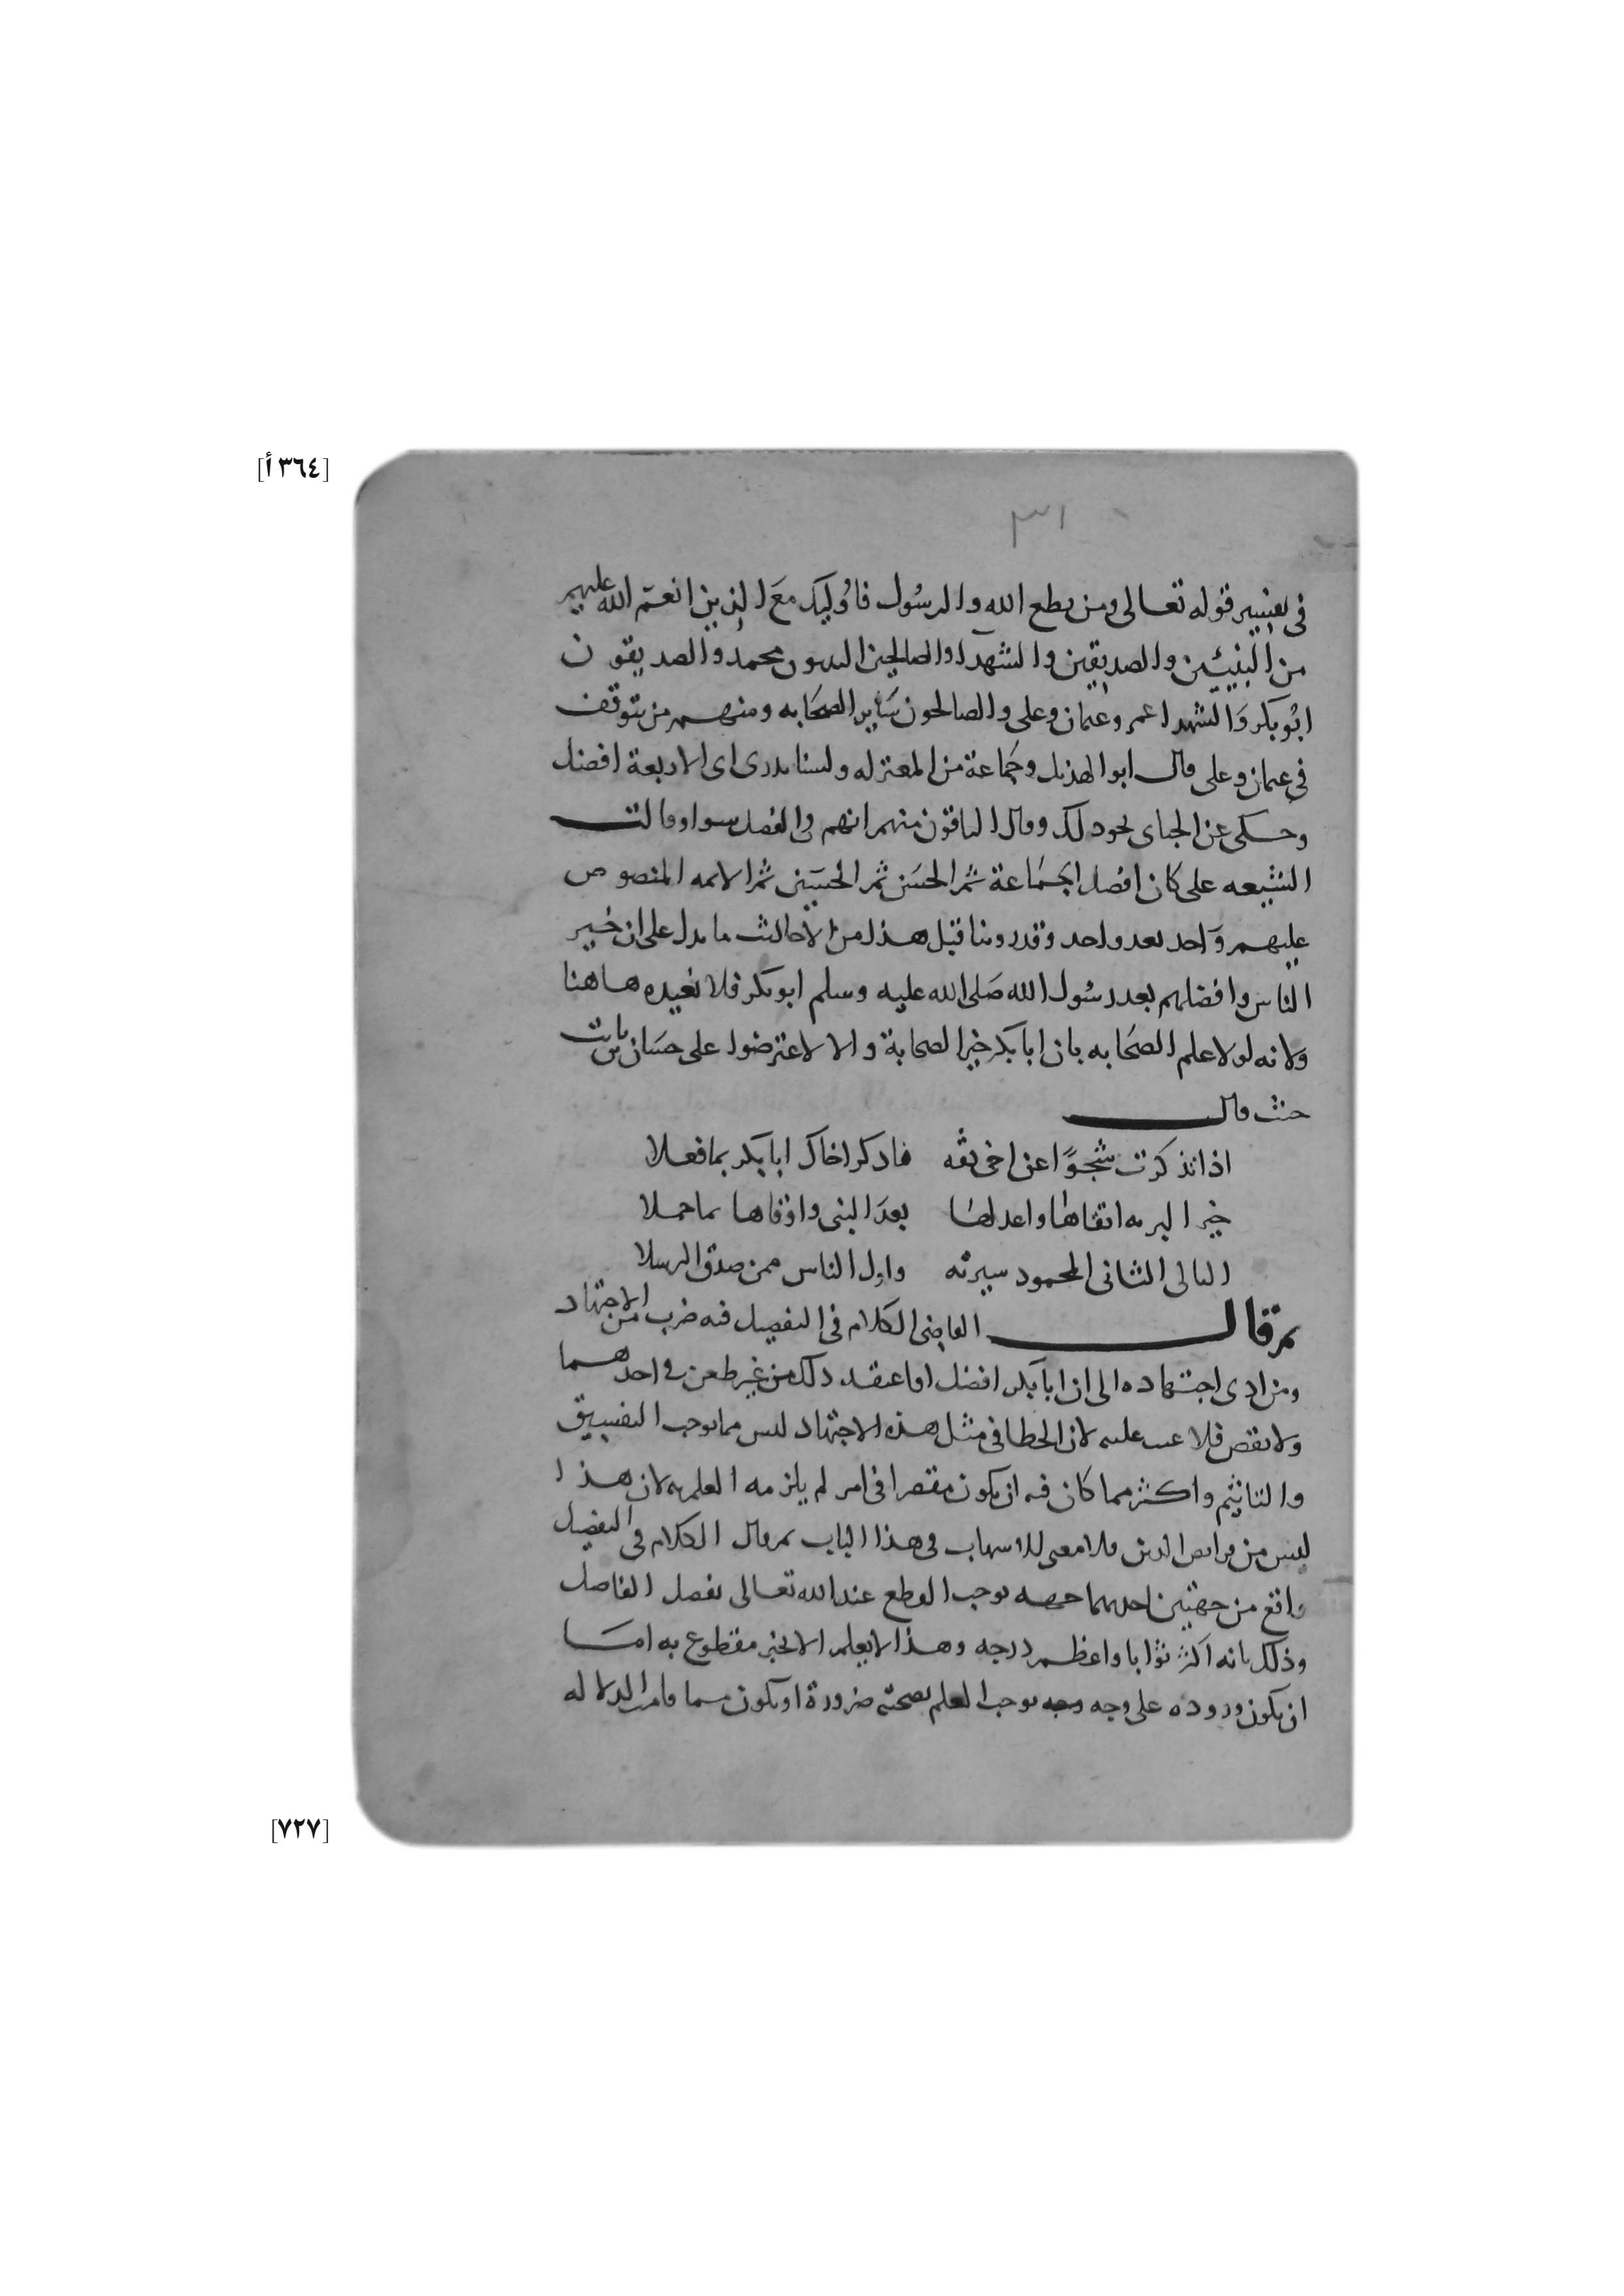 [٣٦٤ أ]
٣١
في تفسير قوله تعالى ومن يطع الله والرسول فاوليك مع الذين انعم الله عليهم
من النبيين والصديقين والشهدا والصالحين النبيون محمد والصديقون
ابو بكر والشهدا عمر وعثمان وعلى والصالحون ساير الصحابه ومنهم من يتوقف
في عثمان وعلى وقال ابو الهذيل وجماعة من المعتزله ولسنا ندرى اى الاربعة افضل
وحكى عن الجباى نحو ذلك وقال الباقون منهم انهم في الفضل سوا وقالت
الشيعه على كان افضل الجماعة ثم الحسن ثم الحسين ثم الائمه المنصوص
عليهم واحد بعد واحد وقد روينا قبل هذا من الاحاديث ما يدل على ان خير
الناس وافضلهم بعد رسول الله صلى الله عليه وسلم ابو بكر فلا نعيده هاهنا
ولانه لولا علم الصحابه بان ابا بكر خير الصحابة والا لاعترضوا على حسان بن ثابت
حيث قال
اذا تذكرت شجوًا عن اخى ثقه فاذكر اخاك ابا بكر بما فعلا
خير البريه اتقاها واعدلها بعد النبى واوفاها بما حملا
التالى الثانى المحمود سيرته واول الناس ممن صدق الرسلا
ثم قال القاضى الكلام في التفضيل فيه ضرب من الاجتهاد
ومن ادى اجتهاده الى ان ابا بكر افضل او اعتقد ذلك من غير طعن في احدهما
ولا نقص فلا عيب عليه لان الخطا في مثل هذه الاجتهاد ليس مما يوجب التفسيق
والتاثيم واكثر مما كان فيه ان يكون مقصرا في امر لم يلزمه العلم به لان هذا
ليس من فرايض الدين فلا معنى للاسهاب في هذا الباب ثم قال الكلام في التفضيل
واقع من جهتين احدهما جهه توجب القطع عند الله تعالى بفضل الفاضل
وذلك بانه اكثر ثوابا واعظم درجه وهذا لا يعلم الا بخبر مقطوع به اما
ان يكون وروده على وجه وجه يوجب العلم بصحته ضرورة او يكون مما قامت الدلاله
[٧٢٧]